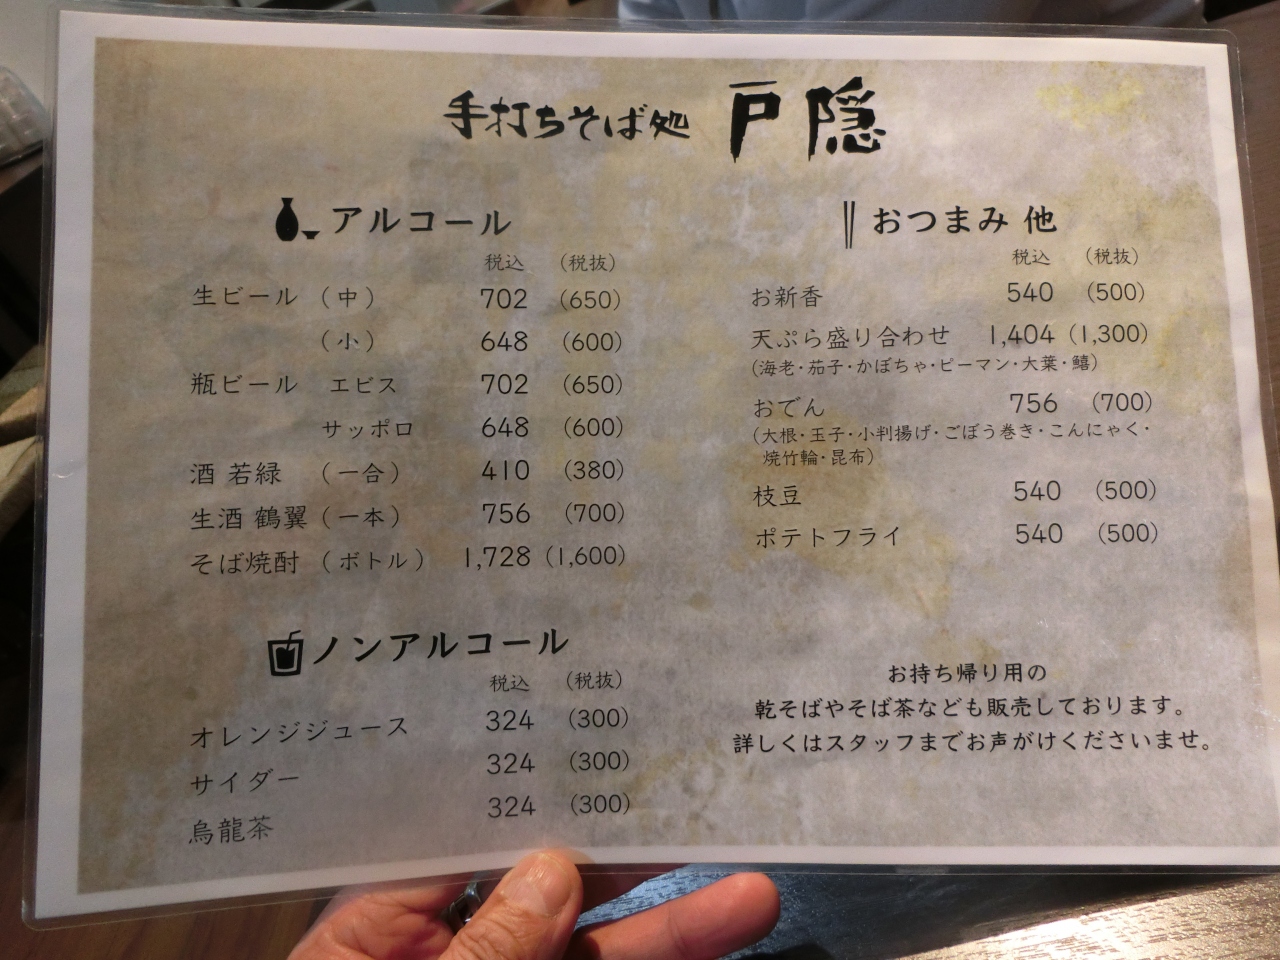 手打ちそば処 戸隠
アルコール
税込 (税抜)
生ビール (中) 702 (650)
(小) 648 (600)
瓶ビール エビス 702 (650)
サッポロ 648 (600)
酒 若緑 (一合) 410 (380)
生酒 鶴翼 (一本) 756 (700)
そば焼酎 (ボトル) 1,728 (1,600)
ノンアルコール
税込 (税抜)
オレンジジュース 324 (300)
サイダー 324 (300)
烏龍茶 324 (300)
おつまみ 他
税込 (税抜)
お新香 540 (500)
天ぷら盛り合わせ 1,404 (1,300)
(海老・茄子・かぼちゃ・ピーマン・大葉・鱚)
おでん 756 (700)
(大根・玉子・小判揚げ・ごぼう巻き・こんにゃく・
焼竹輪・昆布)
枝豆 540 (500)
ポテトフライ 540 (500)
お持ち帰り用の
乾そばやそば茶なども販売しております。
詳しくはスタッフまでお声がけくださいませ。